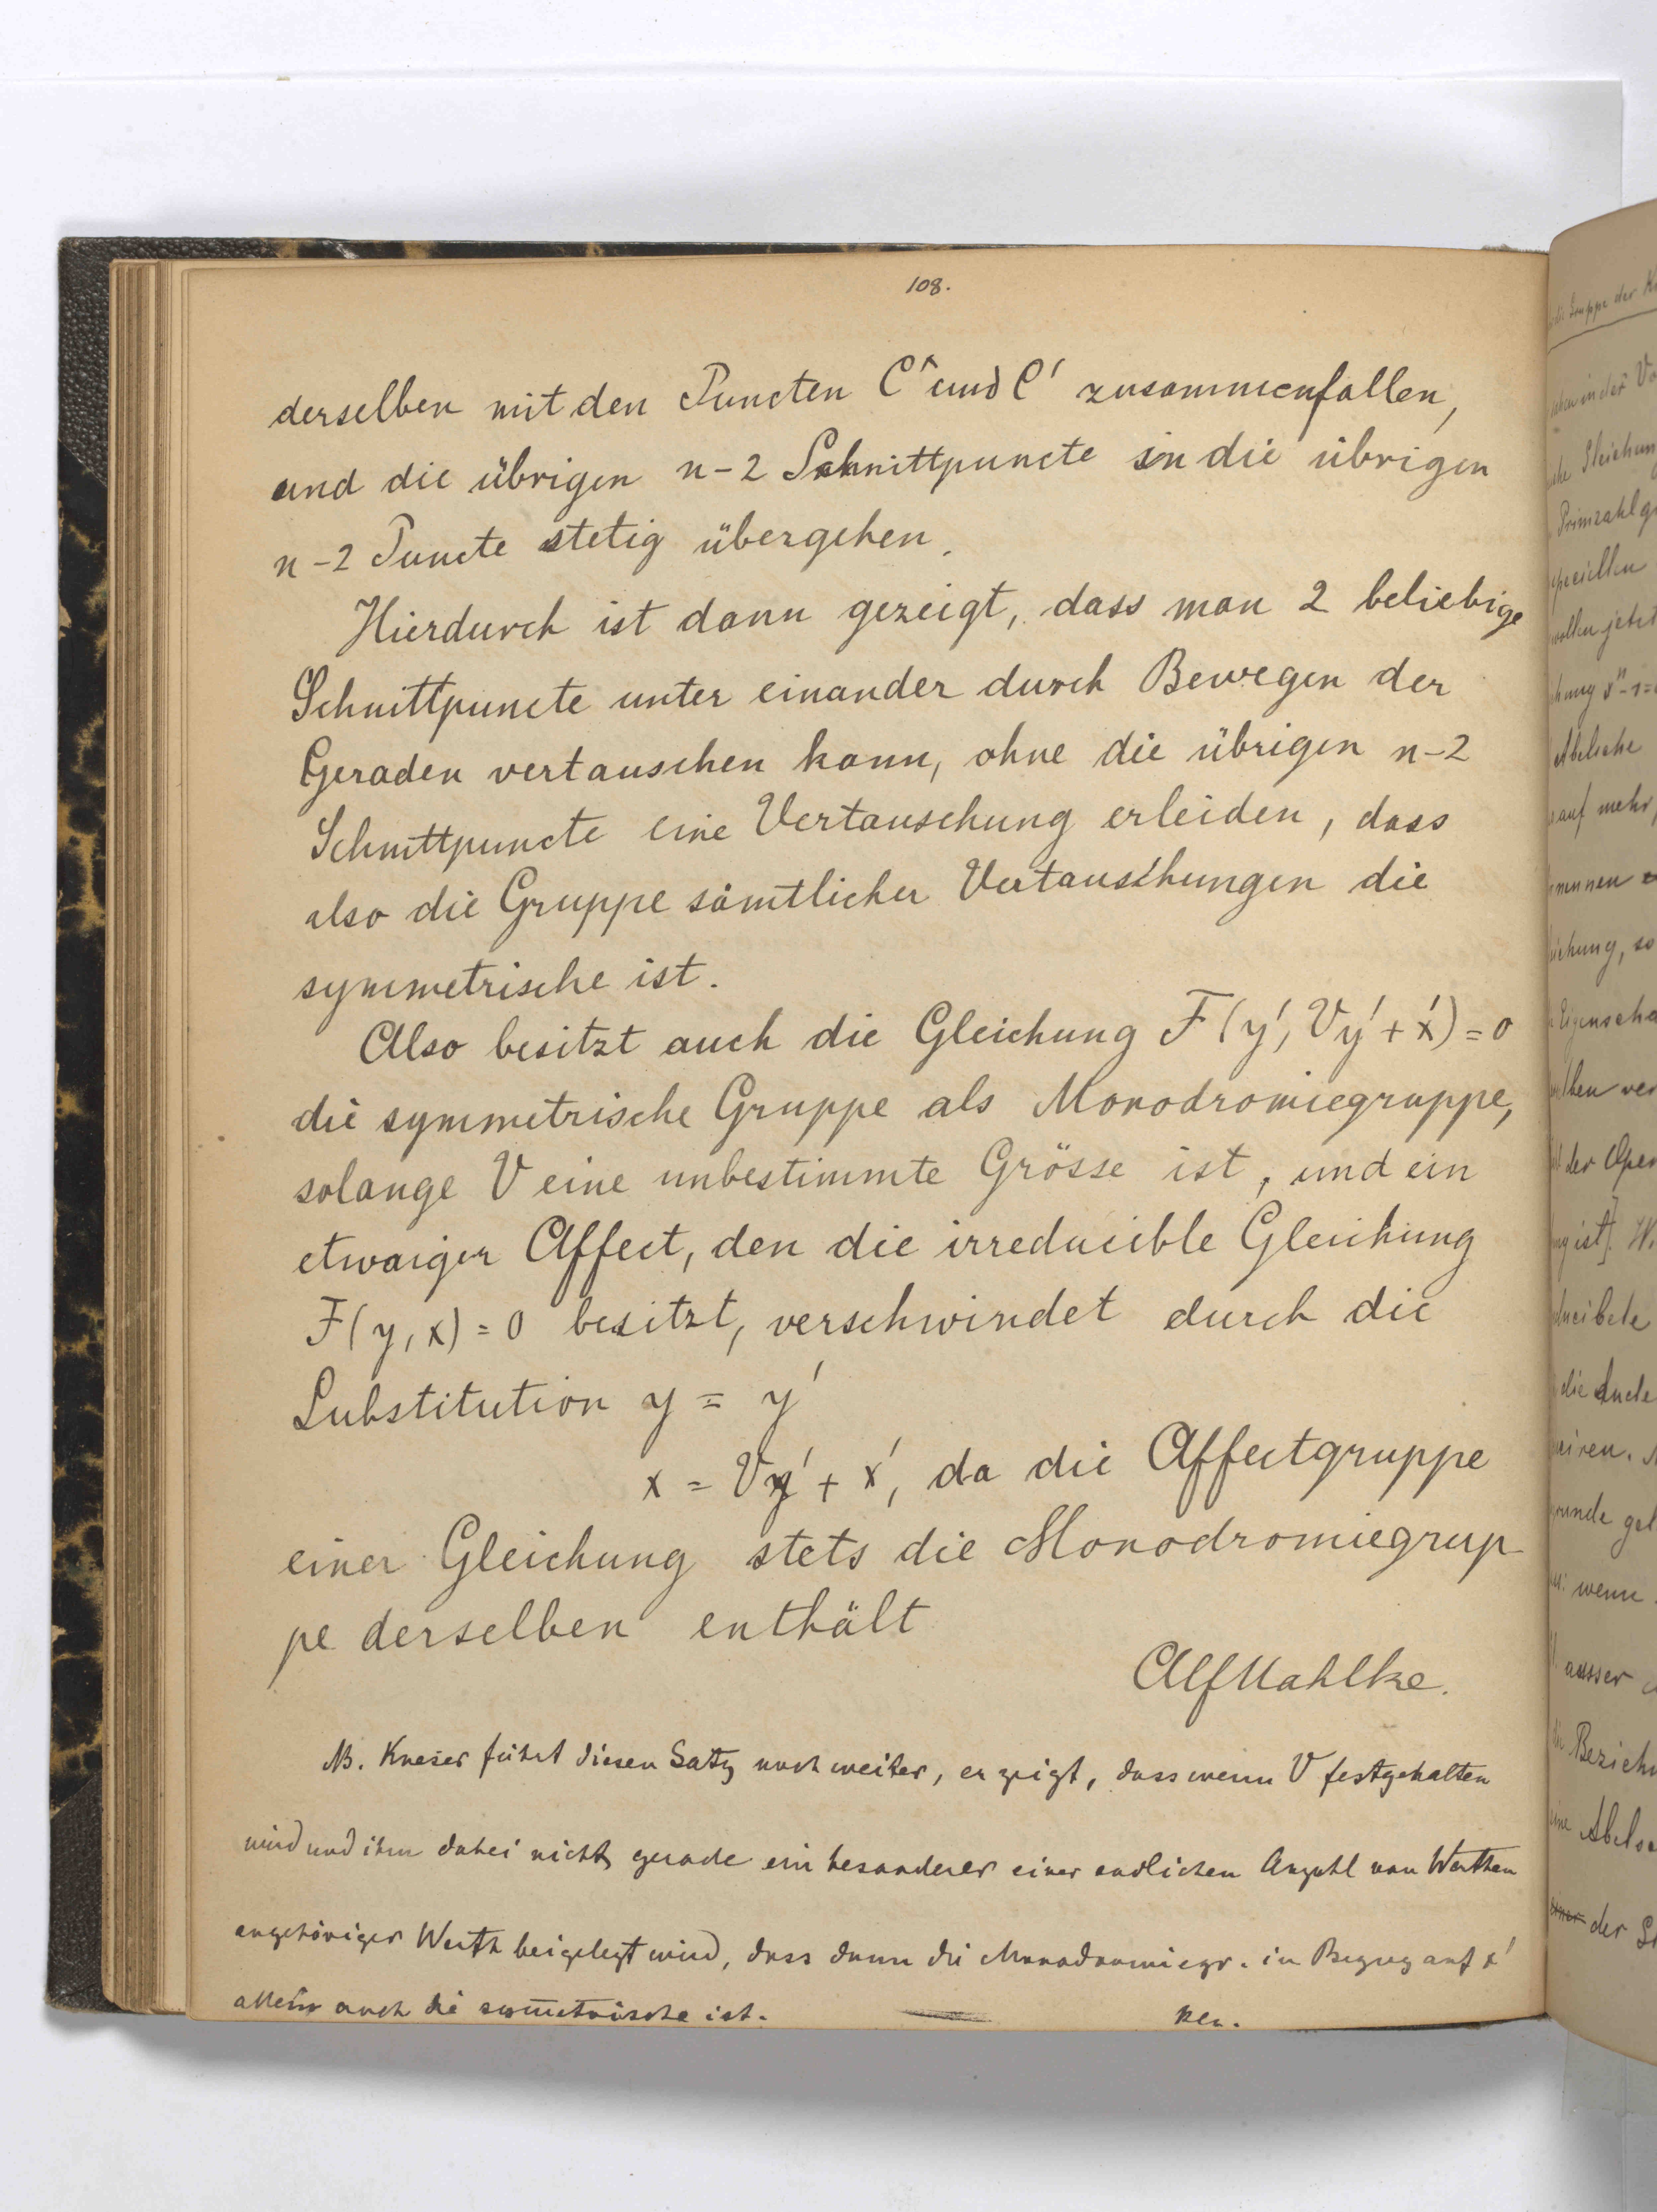 108.
derselben mit den Puncten C^ und C' zusammenfallen,
und die übrigen n-2 Schnittpuncte in die übrigen
n-2 Puncte stetig übergehen.
Hierdurch ist dann gezeigt, dass man 2 beliebige
Schnittpuncte unter einander durch Bewegen der
Geraden vertauschen kann, ohne die übrigen n-2
Schnittpuncte eine Vertauschung erleiden, dass
also die Gruppe sämtlicher Vertauschungen die
symmetrische ist.
Also besitzt auch die Gleichung F(y', Vy'+x')=0
die symmetrische Gruppe als Monodromiegruppe,
solange V eine unbestimmte Grösse ist, und ein
etwaiger Affect, den die irreducible Gleichung
F(y,x)=0 besitzt, verschwindet durch die
Substitution y = y'
x = Vy' + x', da die Affectgruppe
einer Gleichung stets die Monodromiegrup
pe derselben enthält
Alf Mahlke.
NB. Kneser führt diesen Satz noch weiter, er zeigt, dass wenn V festgehalten
wird und ihm dabei nicht gerade ein besonderer einer endlichen Anzahl von Werthen
angehöriger Werth beigelegt wird, dass dann die Monodromiegr. in Bezug auf x'
allein auch die symmetrische ist.
Gruppe der
Gleichung
Primzahl
speciellen
wollen jetzt
Abelsche
auf mehr,
der
die
wenn
ausser
der